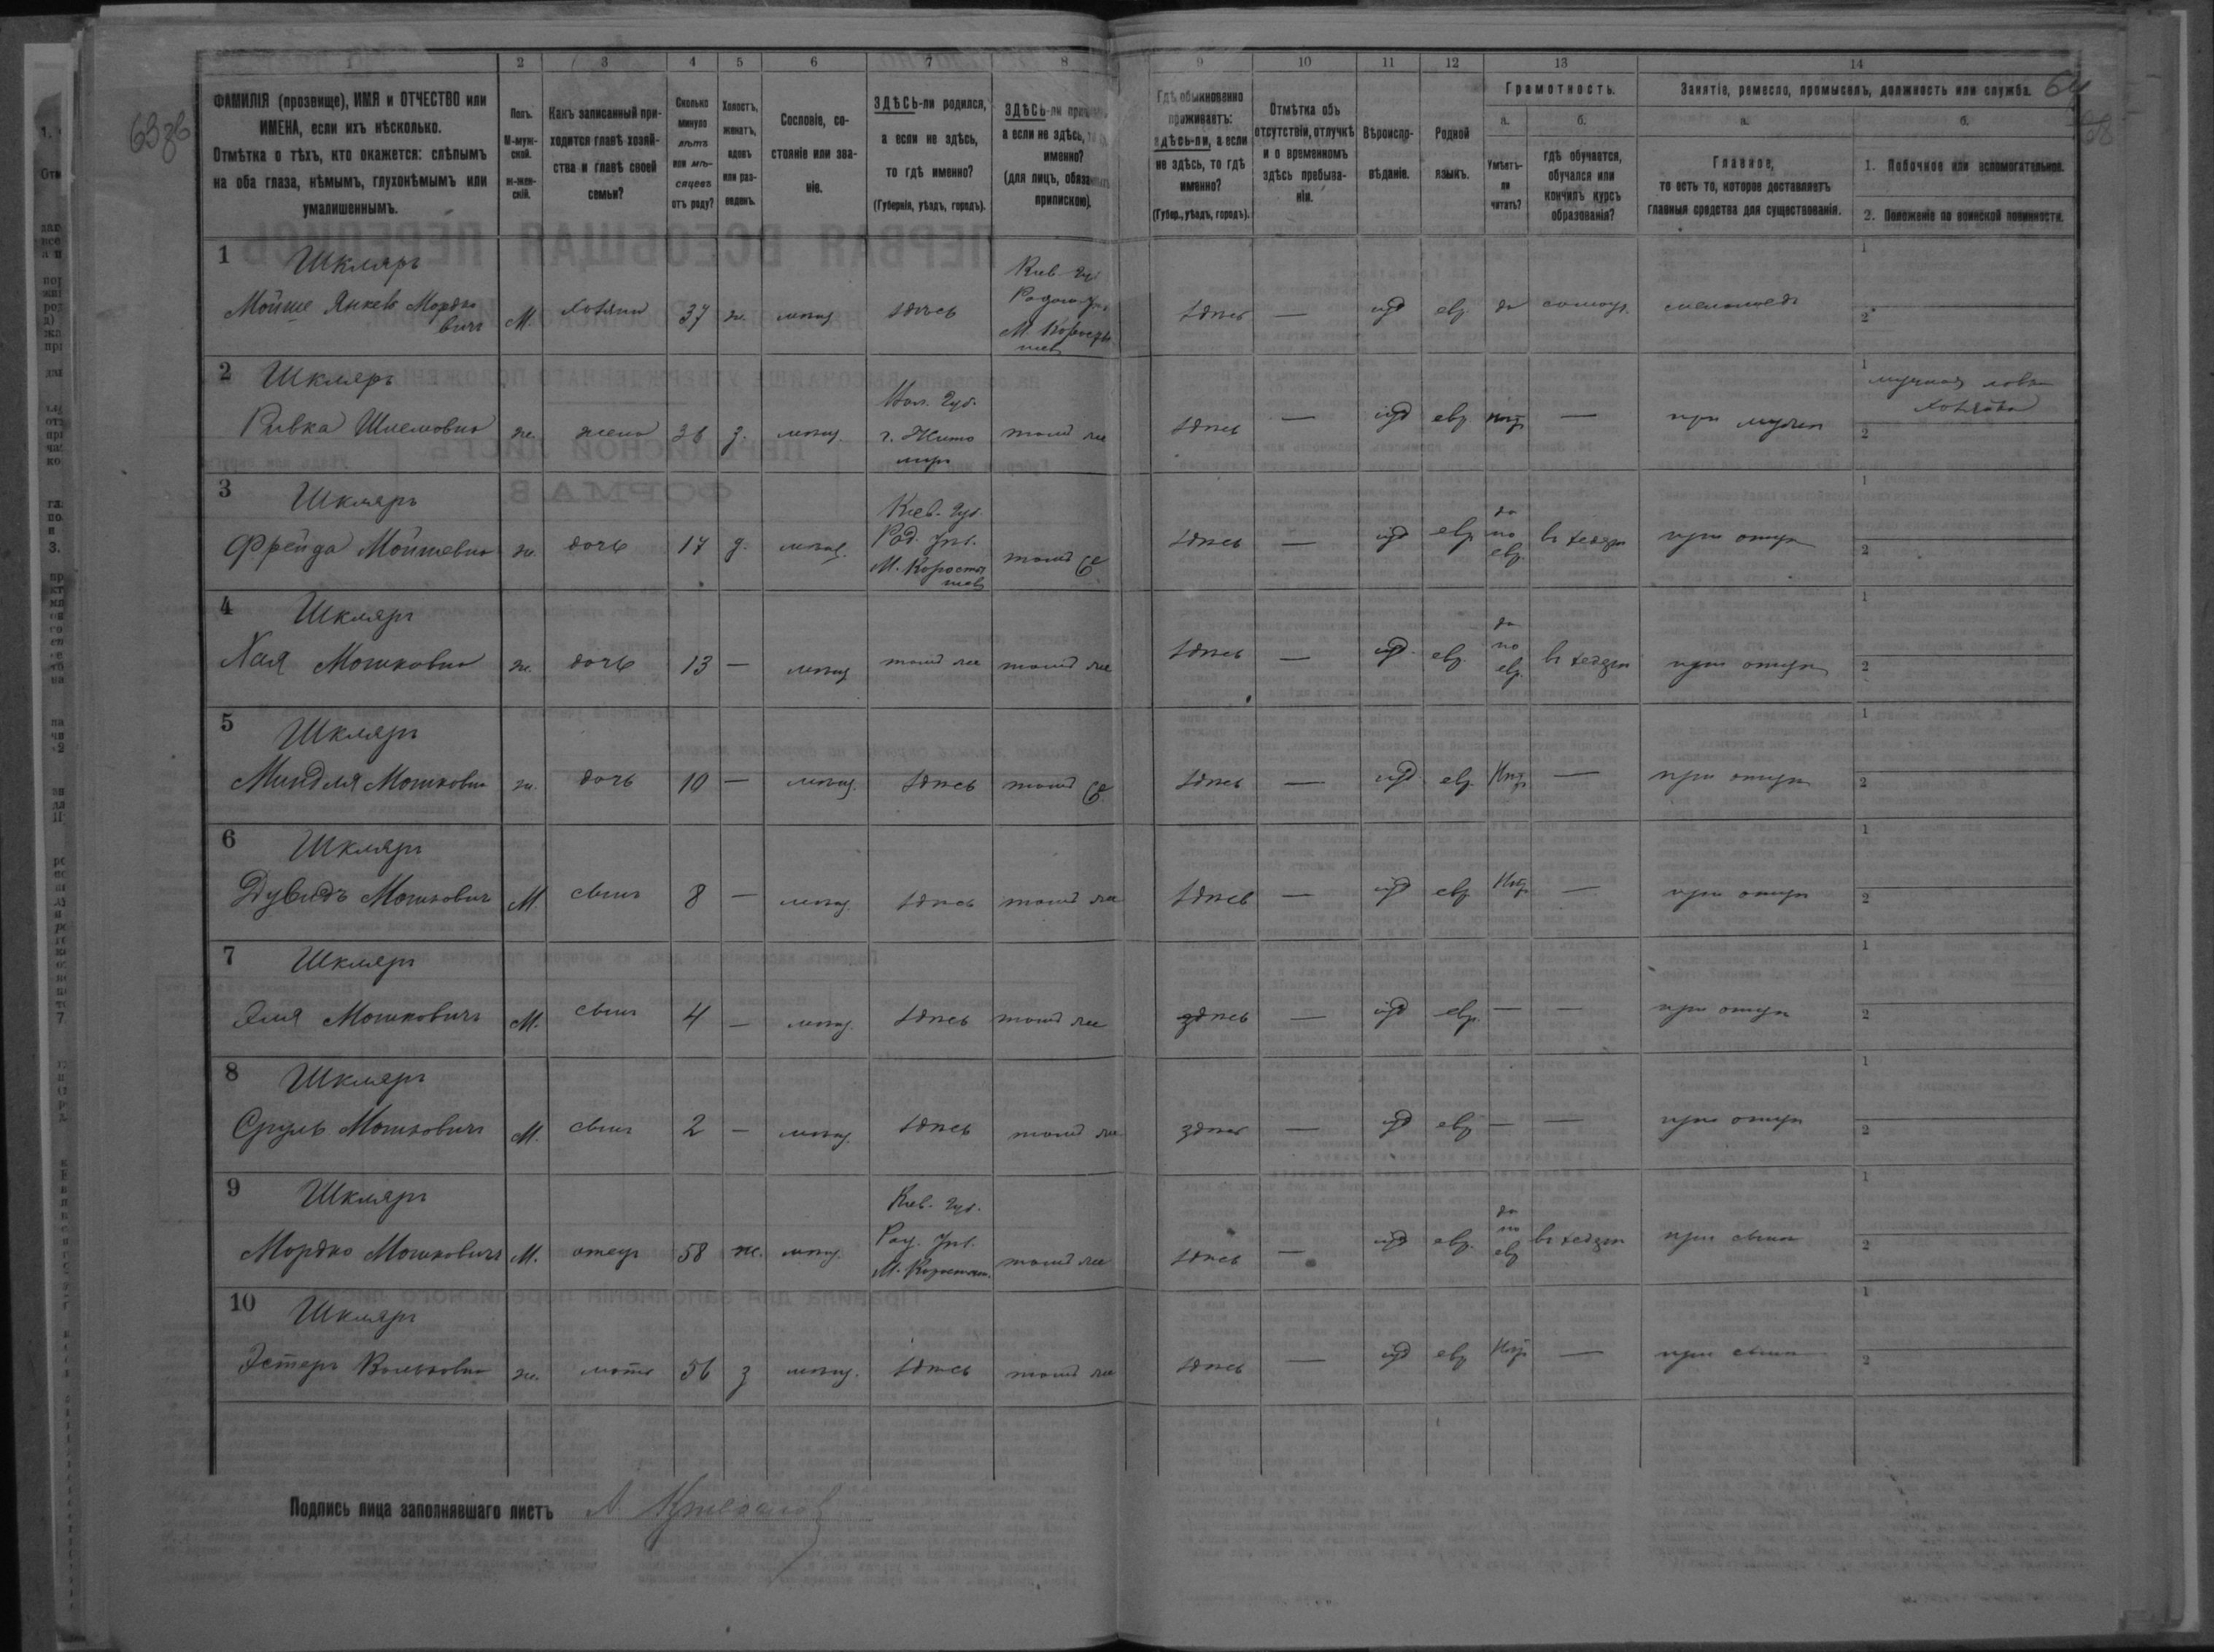 63об
64
58
1
2
3
4
5
6
7
8
9
10
11
12
13
14
ФАМИЛІЯ (прозвище), ИМЯ и ОТЧЕСТВО или
ИМЕНА, если ихъ нѣсколько.
Отмѣтка о тѣхъ, кто окажется: слѣпымъ
на оба глаза, нѣмымъ, глухонѣмымъ или
умалишеннымъ.
Полъ.
М-муж-
ской.
ж-жен-
скій.
Какъ записанный при-
ходится главѣ хозяй-
ства и главѣ своей
семьи?
Сколько
минуло
лѣтъ
или мѣ-
сяцевъ
отъ роду?
Холостъ,
женатъ,
вдовъ
или раз-
веденъ.
Сословіе, со-
стояніе или зва-
ніе.
ЗДѢСЬ-ли родился,
а если не здѣсь,
то гдѣ именно?
(Губернія, уѣздъ, городъ).
ЗДѢСЬ-ли
а если не здѣсь,
именно?
(для лицъ,
припискою).
Гдѣ обыкновенно
проживаетъ:
здѣсь-ли, а если
не здѣсь, то гдѣ
именно?
(Губер., уѣздъ, городъ).
Отмѣтка объ
отсутствіи, отлучкѣ
и о временномъ
здѣсь пребыва-
ніи.
Вѣроиспо-
вѣданіе.
Родной
языкъ.
Грамотность.
а.
Умѣетъ-
ли
читать?
б.
гдѣ обучается,
обучался или
кончилъ курсъ
образованія?
Занятіе, ремесло, промыселъ, должность или служба.
а.
Главное,
то есть то, которое доставляетъ
главныя средства для существованія.
б.
1. Побочное или вспомогательное.
2. Положеніе по воинской повинности.
1 Шкляръ
Мойше Янкевъ Мордко
вичъ М. хозяинъ 37 ж. мѣщ. здѣсь
Кіев. Губ.
Радом. уѣз.
М. Коросты
шев
здѣсь — іуд евр да меламедъ
2 Шкляръ
Ривка Шлемовна ж. жена 36 з. мѣщ.
Вол. Губ.
г. Жито
миръ
тамъ же здѣсь — іуд евр. нѣт — при мужѣ
мучная лавка
3 Шкляръ
Фрейда Мойшевна ж. дочь 17 д. мѣщ.
Кіев. Губ.
Рад. уѣз.
М. Коросты
шев
здѣсь — іуд евр да по евр. въ хедерѣ при отцѣ
4 Шкляръ
Хая Мошковна ж. дочь 13 — мѣщ тамъ же тамъ же здѣсь — іуд. евр. да по евр. въ хедерѣ при отцѣ
5 Шкляръ
Миндля Мошковна ж. дочь 10 — мѣщ. здѣсь здѣсь — іуд. евр. Нѣт — при отцѣ
6 Шкляръ
Дувидъ Мошковичъ М. сынъ 8 — мѣщ. здѣсь тамъ же здѣсь — іуд евр Нѣт — при отцѣ
7 Шкляръ
Эля Мошковичъ М. сынъ 4 — мѣщ. здѣсь тамъ же здѣсь — іуд евр. — — при отцѣ
8 Шкляръ
Сруль Мошковичъ М. сынъ 2 — мѣщ. здѣсь тамъ же здѣсь — іуд евр — — при отцѣ
9 Шкляръ
Мордко Мошковичъ М. отецъ 58 ж. мѣщ.
Кіев. Губ.
Рад. уѣз.
М. Коростыш.
тамъ же здѣсь — іуд евр. да по евр въ хедерѣ при сынѣ
10 Шкляръ
Эстеръ Вольковна ж. мать 56 з мѣщ. здѣсь тамъ же здѣсь — іуд евр Нѣт — при сынѣ
Подпись лица заполнявшаго листъ